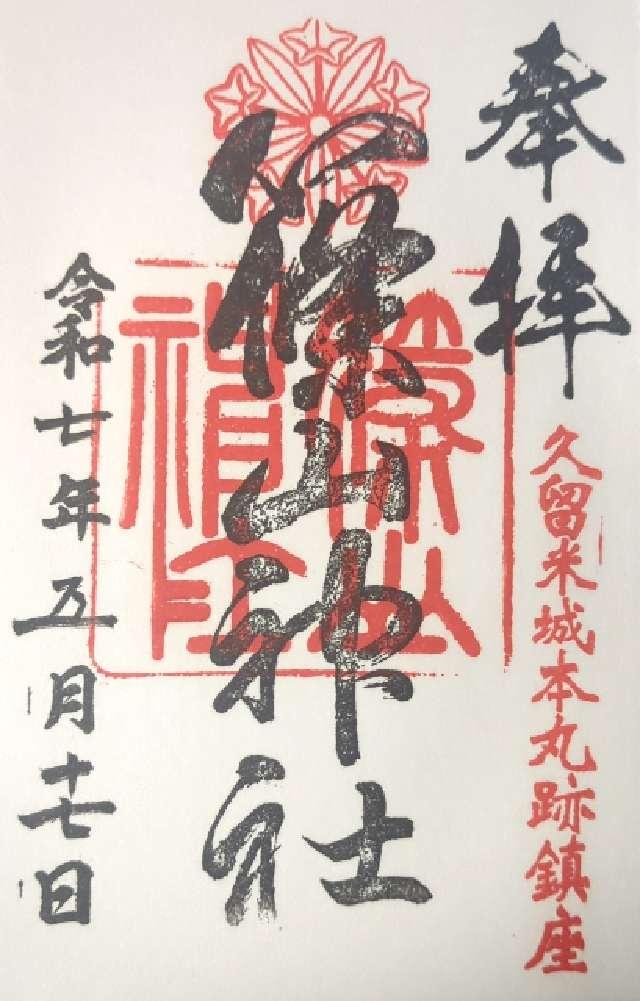 奉拝
久留米城本丸跡鎮座
篠山神社
令和七年五月十七日